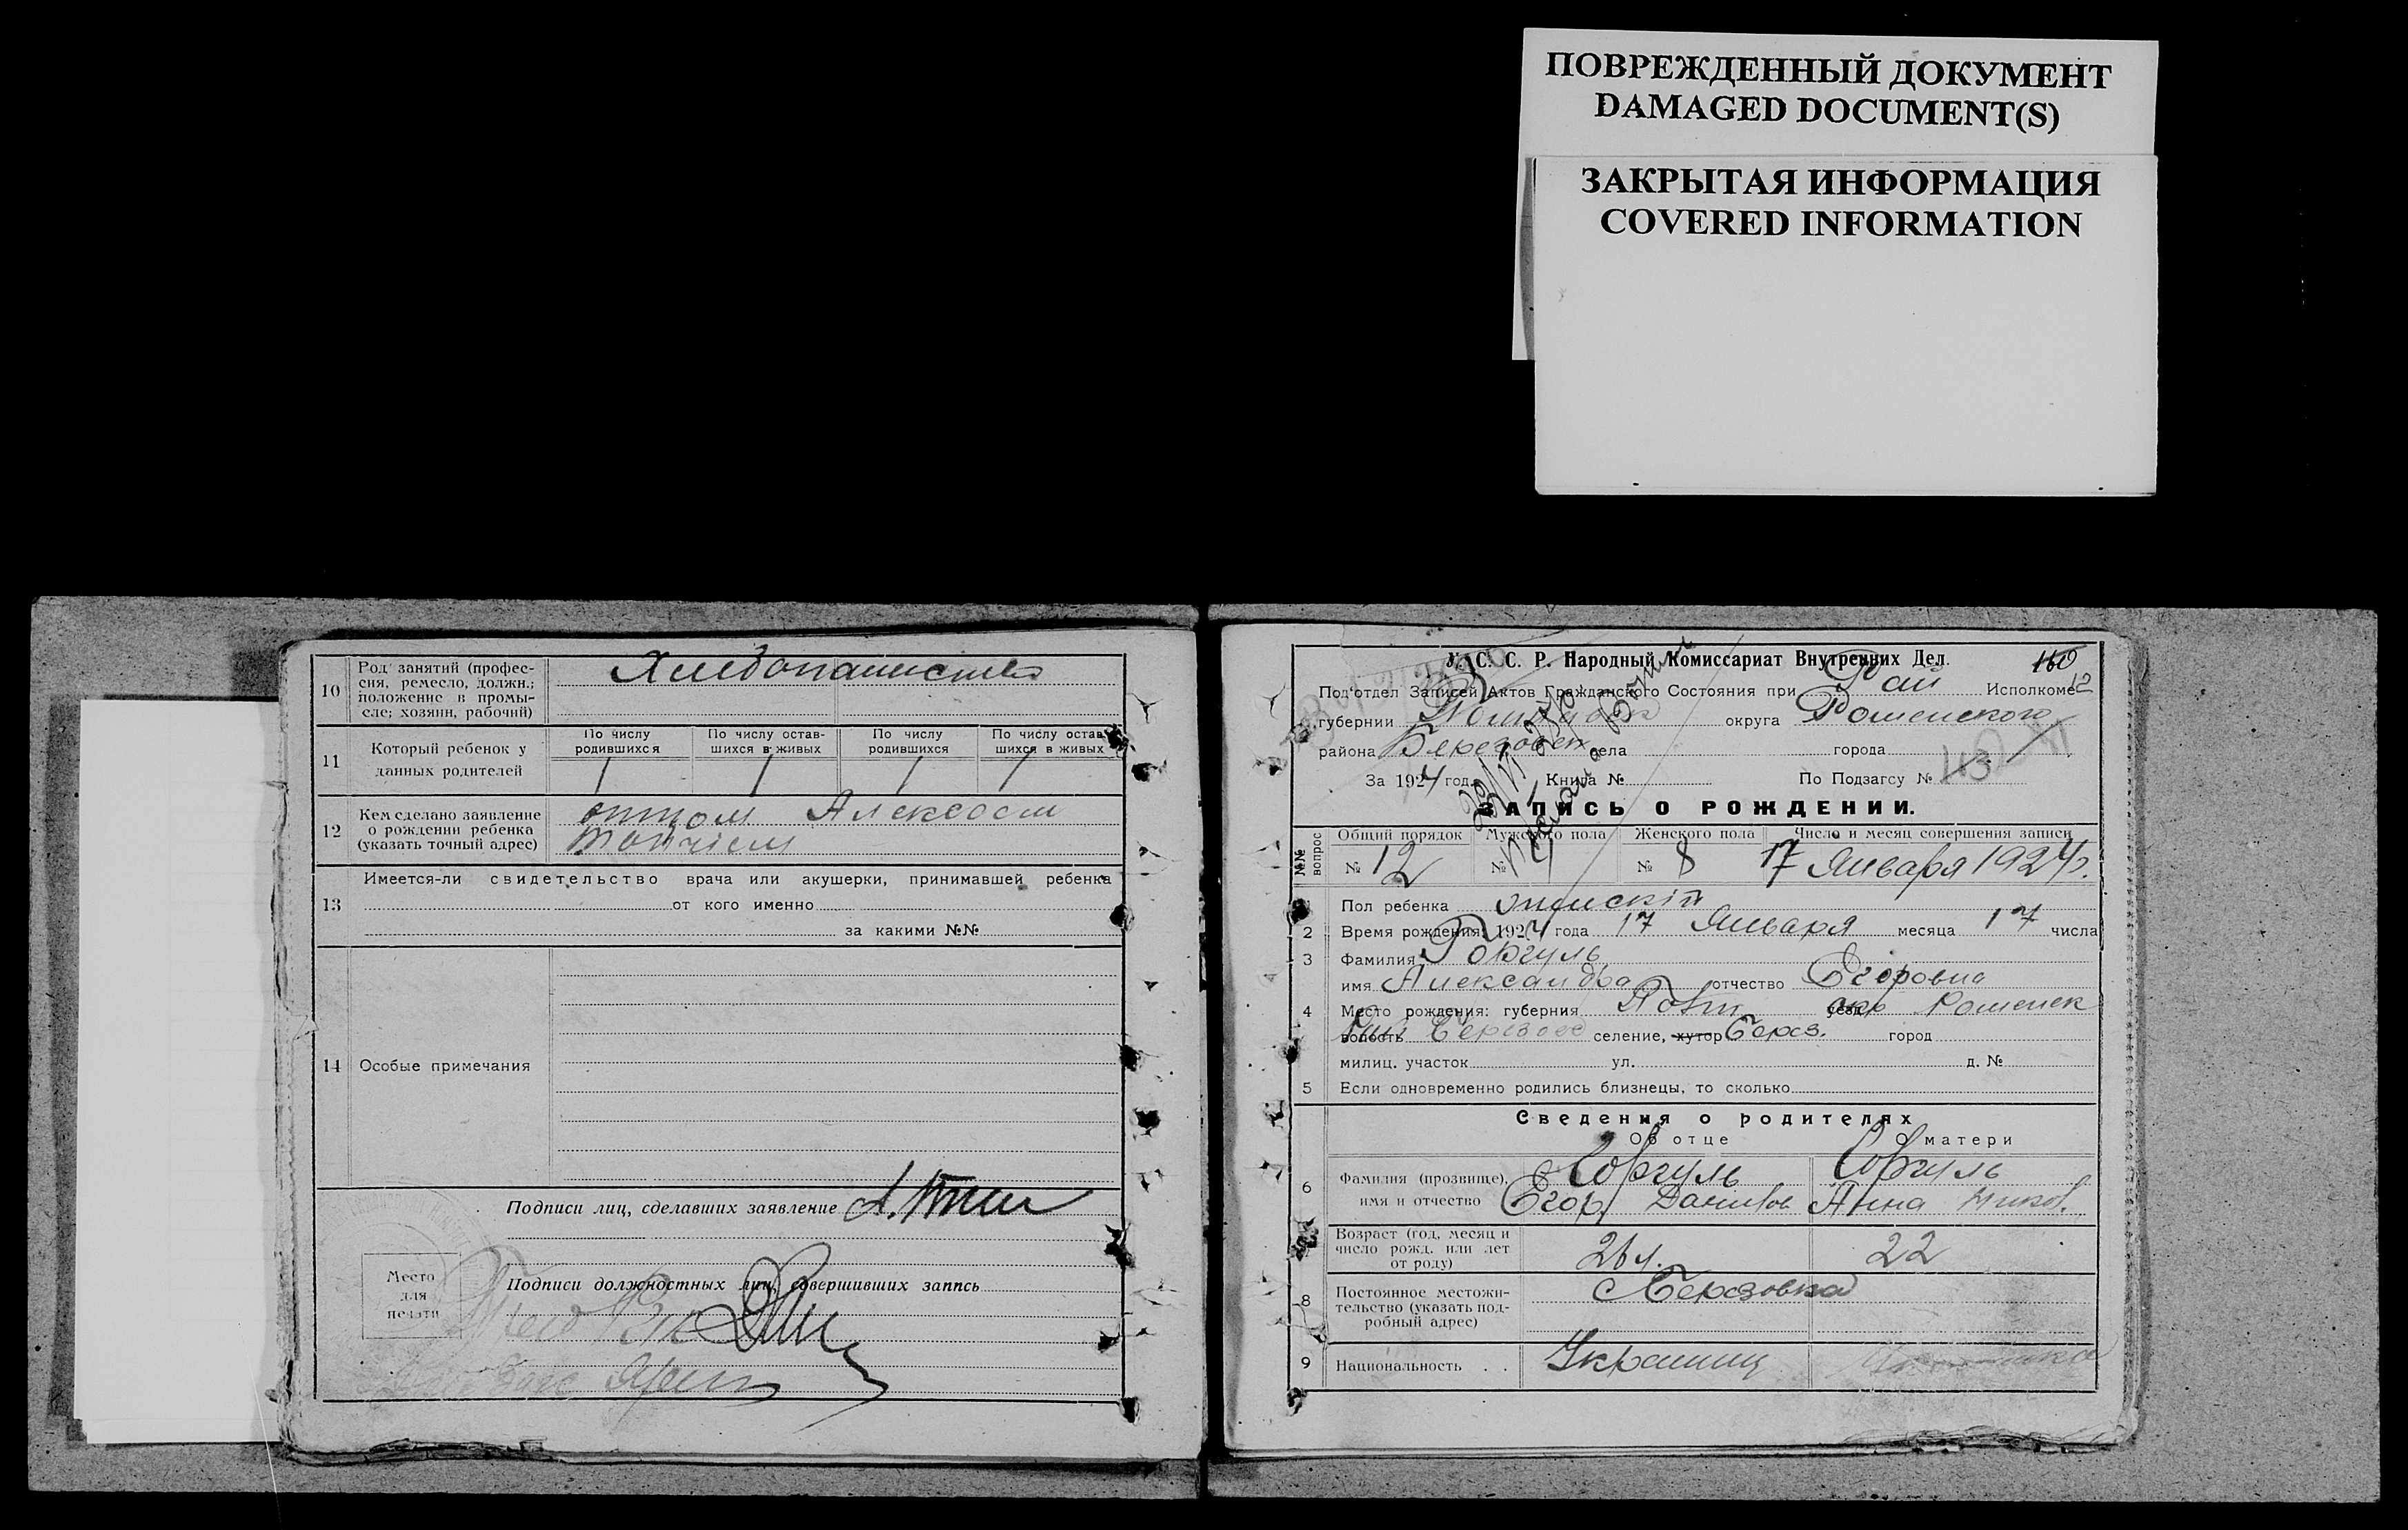 ПОВРЕЖДЕННЫЙ ДОКУМЕНТ
DAMAGED DOCUMENT(S)
ЗАКРЫТАЯ ИНФОРМАЦИЯ
COVERED INFORMATION
10 Род занятий (профес-
сия, ремесло, должн.;
положение в промы-
сле; хозяин, рабочий)
Хлебопашество
11 Который ребенок у
данных родителей
По числу родившихся По числу остав-шихся в живых По числу родившихся По числу остав шихся в живых
1 1 1 1
12 Кем сделано заявление
о рождении ребенка
(указать точный адрес)
отцом Алексеем
13 Имеется-ли свидетельство врача или акушерки, принимавшей ребенка
от кого именно
за какими №№
14 Особые примечания
Подписи лиц, сделавших заявление
Место
для
печати
Подписи должностных лиц, совершивших запись
У. С. С. Р. Народный Комиссариат Внутренних Дел.
160
Под'отдел Записей Актов Гражданского Состояния при Рай Исполкоме 12
губернии округа Роменского
района села города
За 1924 год Книга № По Подзагсу №
ЗАПИСЬ О РОЖДЕНИИ.
№№ вопрос
Общий порядок Мужского пола Женского пола Число и месяц совершения записи
№ 12 № 4 № 8 17 Января 1924 г.
Пол ребенка женский
2 Время рождения: 1924 года 17 Января месяца 17 числа
3 Фамилия Горгуль
имя Александра отчество Егоровна
4 Место рождения: губерния Полт уезд окр Роменск
волость селение, хутор Берез. город
милиц. участок ул. д. №
5 Если одновременно родились близнецы, то сколько
Сведения о родителях
Об отце О матери
6 Фамилия (прозвище),
имя и отчество
Горгуль Горгуль
Егор Данилов Анна Никол.
Возраст (год, месяц и
число рожд. или лет
от роду)
26 л. 22
8 Постоянное местожи-
тельство (указать под-
робный адрес)
с Березовка
9 Национальность Украинец